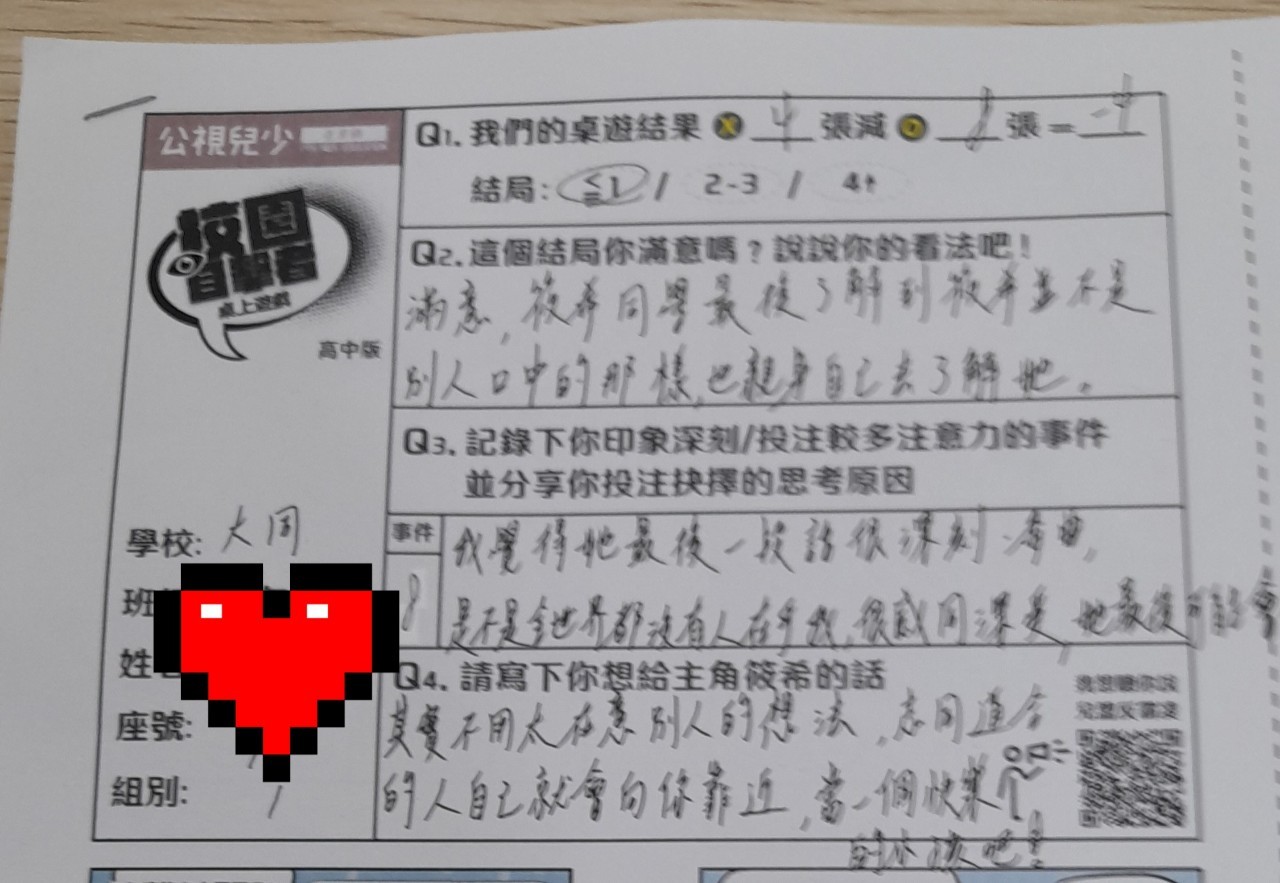 公視兒少
校園
旁觀者
桌上遊戲
高中版
學校: 大同
班
姓
座號:
組別: 1
Q1. 我們的桌遊結果 X 4 張減 O 8 張 = -4
結局: ≦1 / 2-3 / 4↑
Q2. 這個結局你滿意嗎？說說你的看法吧！
滿意, 筱希同學最後了解到筱希並不是
別人口中的那樣,也親身自己去了解她。
Q3. 記錄下你印象深刻/投注較多注意力的事件
並分享你投注抉擇的思考原因
事件
8
我覺得她最後一段話很深刻、
是不是全世界都沒有人在乎我,很感同深受,她最後可能會
Q4. 請寫下你想給主角筱希的話
其實不用太在意別人的想法,志同道合
的人自己就會向你靠近,當一個快樂
的小孩吧!
我想聽你說
兒盟反霸凌